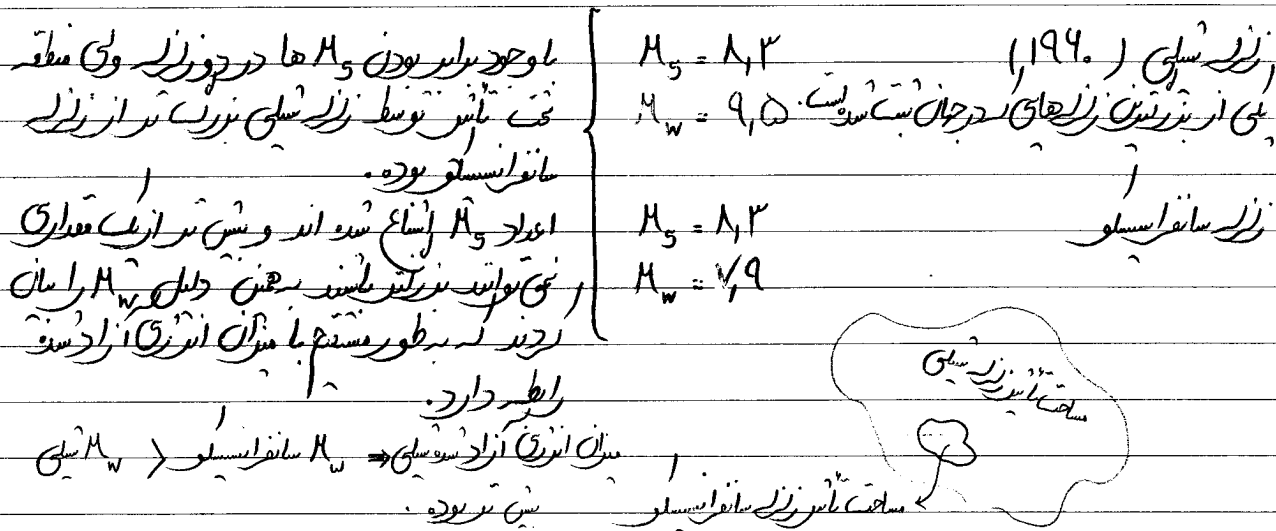 زلزله شیلی (۱۹۶۰)
یکی از بزرگترین زلزله‌های که در جهان ثبت شده است.
M_s = ۸,۳
M_w = ۹,۵
زلزله سانفرانسیسکو
M_s = ۸,۳
M_w = ۷,۹
با وجود برابر بودن M_s ها در دو زلزله ولی منطقه
تحت تأثیر توسط زلزله شیلی بزرگ تر از زلزله
سانفرانسیسکو بوده.
اعداد M_s اشباع شده اند و بیش تر از یک مقداری
نمی توانند بزرگتر باشند به همین دلیل M_w را بیان
کردند که به طور مستقیم با میزان انرژی آزاد شده
رابطه دارد.
M_w شیلی > M_w سانفرانسیسکو ⇒ میزان انرژی آزاد شده شیلی
بیش تر بوده.
مساحت تأثیر زلزله شیلی
مساحت تأثیر زلزله سانفرانسیسکو